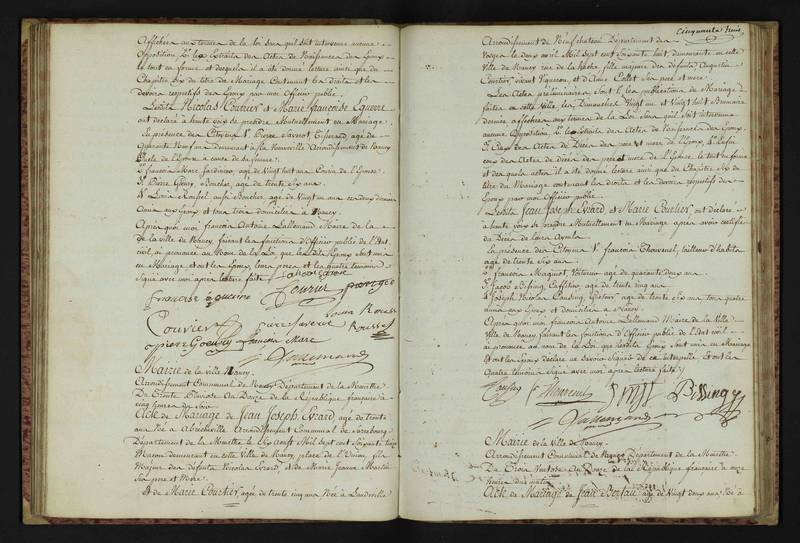 Affiches aux termes de la loi sans qu'il soit intervenu aucune
Opposition 2.° les Extraits des Actes de Naissances des Epoux
le tout en forme et desquels il a été donné lecture ainsi que du
Chapitre Six du titre du Mariage Contenant les droits et les
devoirs respectifs des Epoux par moi Officier public
Lesdits Nicolas Courtier et Marie françoise
ont déclaré à haute voix se prendre Mutuellement en Mariage
En présence des Citoyens 1.° Tisserand, agé de
Quarante Neuf ans demeurant à la Neuveville Arrondissement de Nancy
Oncle de l'Epoux à cause de sa femme
2.° françois Marc Jardinier, agé de vingt huit ans Cousin de l'Epouse
3.° Pierre Boucher, agé de trente Six ans
4.° Louis Roussel aussi Boucher agé de vingt un ans
amis aux Epoux et tous trois domiciliés à Nancy
Après quoi moi françois Antoine Lallemand Maire de la
de la ville de Nancy, faisant les fonctions d'Officier public de l'Etat
civil, ai prononcé au Nom de la Loi, que lesdits Epoux sont unis
en Mariage et ont les Epoux, leurs pères et les quatre témoins
Signé avec moi après lecture faite
françoise
Courier
Louis Rousse
françois Marc
Lallemand
Mairie de la ville Nancy.
Arrondissement Communal de Nancy Département de la Meurthe
Du Trente Pluviose An Douze de la République française à
cinq heures du soir
Acte de Mariage de Jean Joseph Evrard, agé de trente
ans Né à Abreschviller Arrondissement Communal de Sarrebourg
Département de la Meurthe le Six Aoust Mil Sept cent Soixante treize
Maçon demeurant en cette Ville de Nancy place de l'Union, fils
Majeur des défunts Nicolas Evrard, et de Marie Jeanne Martin
Ses père et Mere
Et de Marie Courtier, agée de trente cinq ans Née à Landaville
Cinquante trois
Arrondissement de Neufchateau Département des
Vosges le douze avril Mil Sept cent Soixante huit, demeurante en cette
Ville de Nancy rue de la hache fille majeure des défunts Augustin
Courtier, vivant Vigneron, et d'Anne Collot Ses pere et mere
Les Actes préliminaires Sont 1.° les publications de Mariage
faites en cette Ville, les Dimanches Vingt un et Vingt huit Brumaire
dernier affichées aux termes de la Loi sans qu'il soit intervenu
aucune Opposition, 2.° les Extraits des Actes de Naissances des Epoux,
3.° Ceux des Actes de Décès des pere et mere de l'Epoux, 4.° Enfin
ceux des Actes de décès des pere et mere de l'Epouse le tout en forme
et desquels actes il a été donné lecture ainsi que du Chapitre Six du
titre du Mariage contenant les droits et les devoirs respectifs des
Epoux par moi Officier public
Lesdits Jean Joseph Evrard et Marie Courtier ont déclaré
à haute voix se prendre Mutuellement en Mariage après avoir certifié
du Décès de leurs Ayeuls
En présence des Citoyens 1.° françois Thouvenel, tailleur d'habits
agé de trente six ans
2.° françois Maquot, Voiturier agé de quarante deux ans
3.° Jacob Bissing Caffetier, agé de trente cinq ans
4.° Joseph Nicolas agé de trente Six ans tous quatre
amis aux Epoux et domiciliés à Nancy
Après quoi moi françois Antoine Lallemand Maire de la Ville
de Nancy faisant les fonctions d'Officier public de l'Etat civil
ai prononcé au nom de la Loi que lesdits Epoux sont unis en Mariage
Et ont les Epoux déclaré ne savoir Signer de ce interpellé Et ont les
Quatre témoins Signé avec moi après lecture faite
Thouvenel
Bissing
Lallemand
Mairie de la Ville de Nancy.
Arrondissement Communal de Nancy Département de la Meurthe
Du Trois Ventose An Douze de la République française à onze
heures du matin
Acte de Mariage de Jean agé de Vingt deux ans Né à